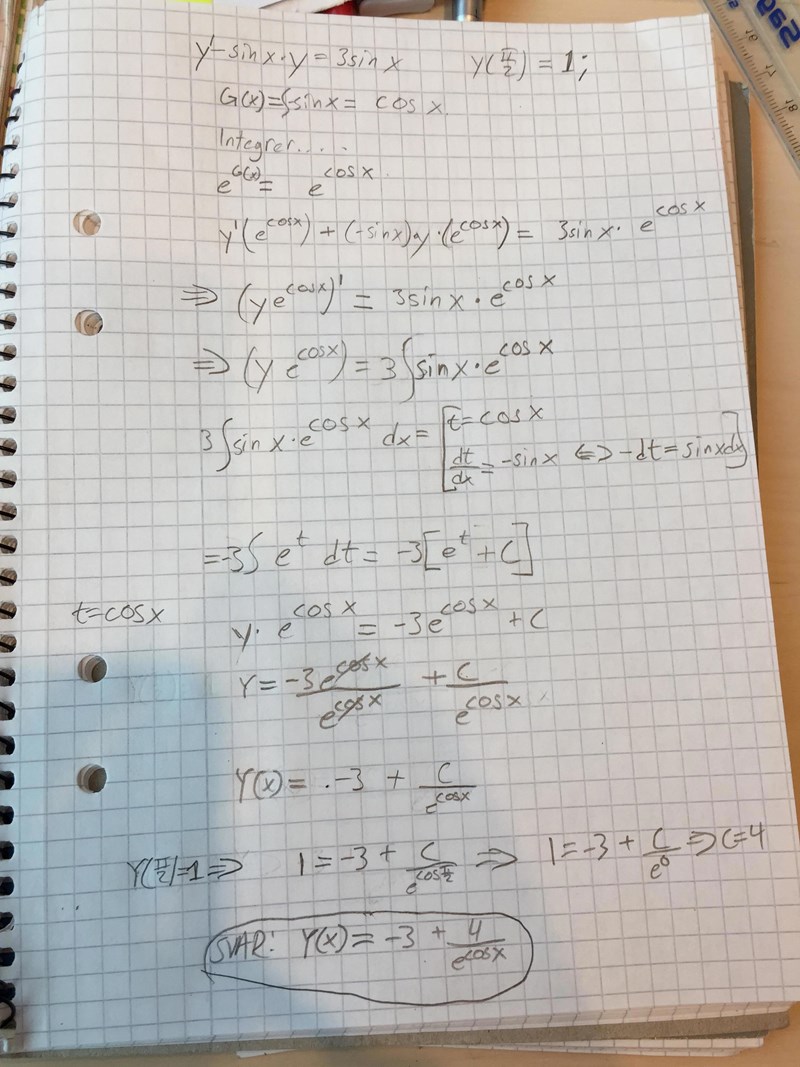 y'-sinx·y = 3sinx    y(π/2) = 1;
G(x)=∫-sinx = cosx.
Integrer....
e^G(x) = e^cosx
y'(e^cosx) + (-sinx)y·(e^cosx) = 3sinx· e^cosx
⇒ (y e^cosx)' = 3sinx·e^cosx
⇒ (y e^cosx) = 3∫sinx·e^cosx
3∫sinx·e^cosx dx = [t=cosx
dt/dx = -sinx ⇔ -dt = sinxdx]
=-3∫ e^t dt = -3[e^t + C]
t=cosx    y· e^cosx = -3e^cosx + C
Y = -3e^cosx/e^cosx + C/e^cosx
Y(x) = .-3 + C/e^cosx
Y(π/2)=1 ⇒ 1=-3 + C/e^cosπ/2 ⇒ 1=-3 + C/e^0 ⇒ C=4
SVAR: Y(x) = -3 + 4/e^cosx